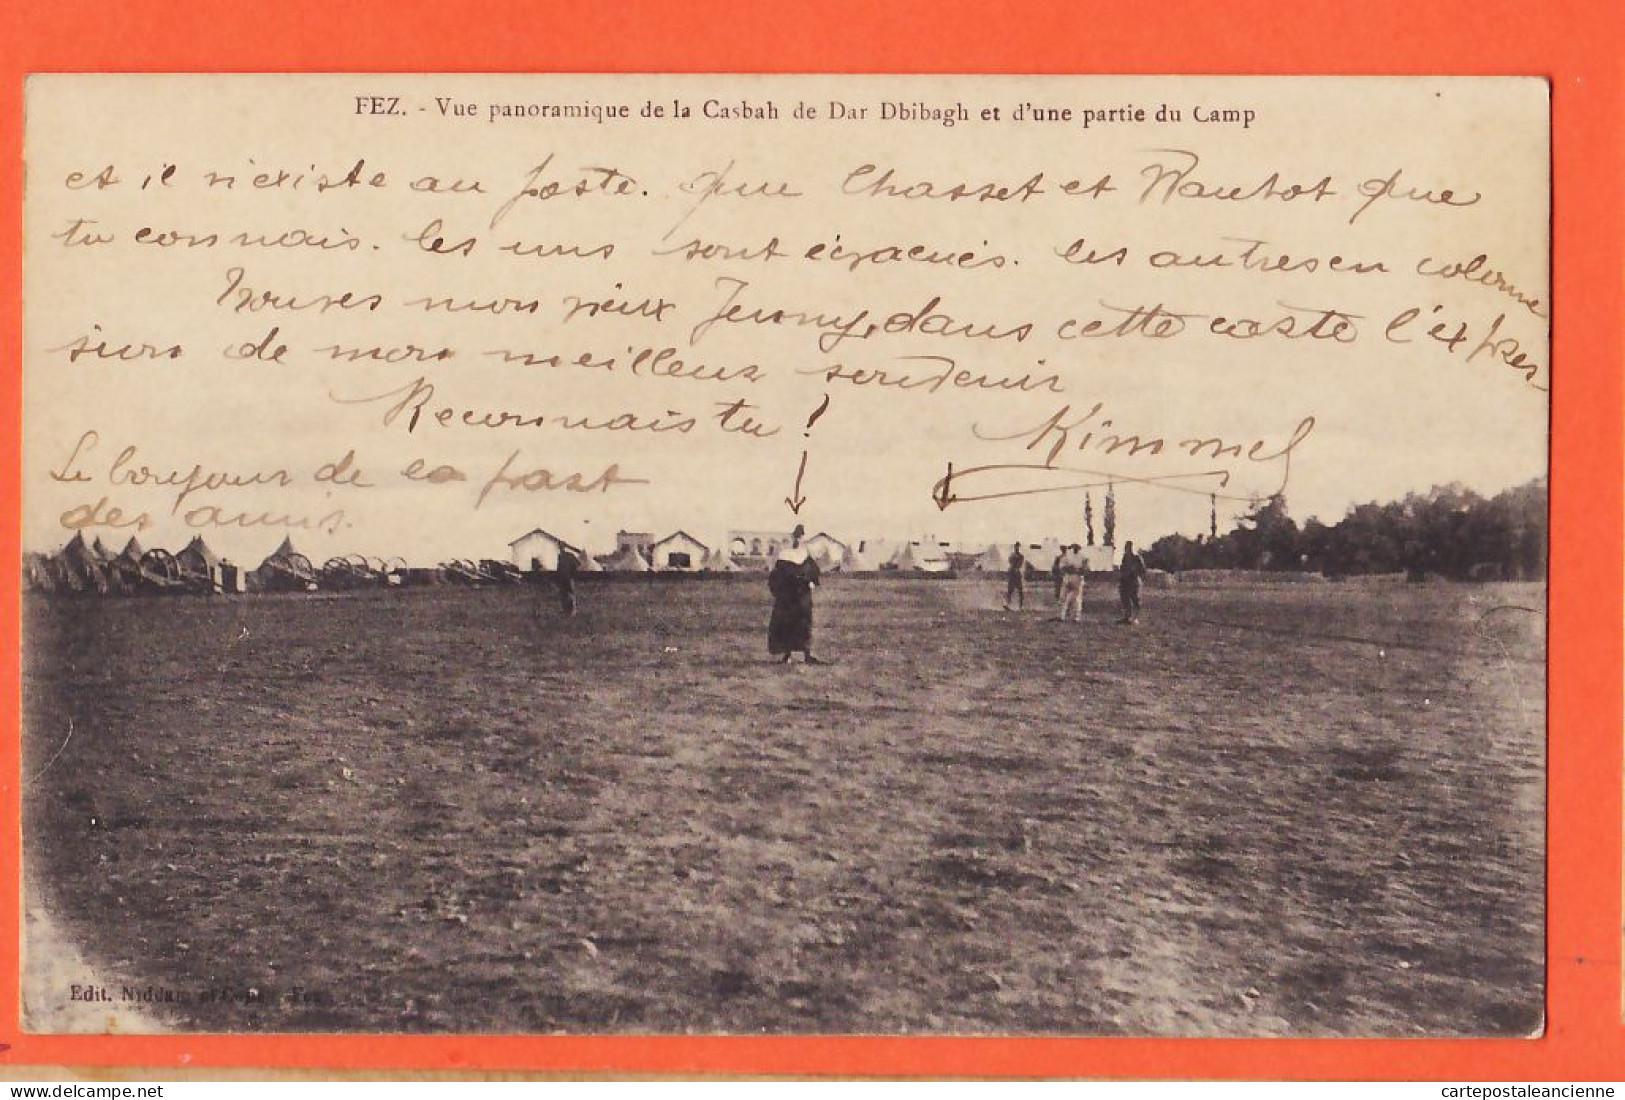 FEZ. - Vue panoramique de la Casbah de Dar Dbibagh et d'une partie du Camp
et il n'existe au poste. que Chasset et Nautot que
tu connais. les uns sont évacués. les autres en colonne
Trouves mon vieux Jenny, dans cette carte l'expres-
sion de mon meilleur souvenir
Reconnais tu !
Kimmel
Le bonjour de la part
des amis.
Edit. Niddam et Fez
cartepostaleancienne